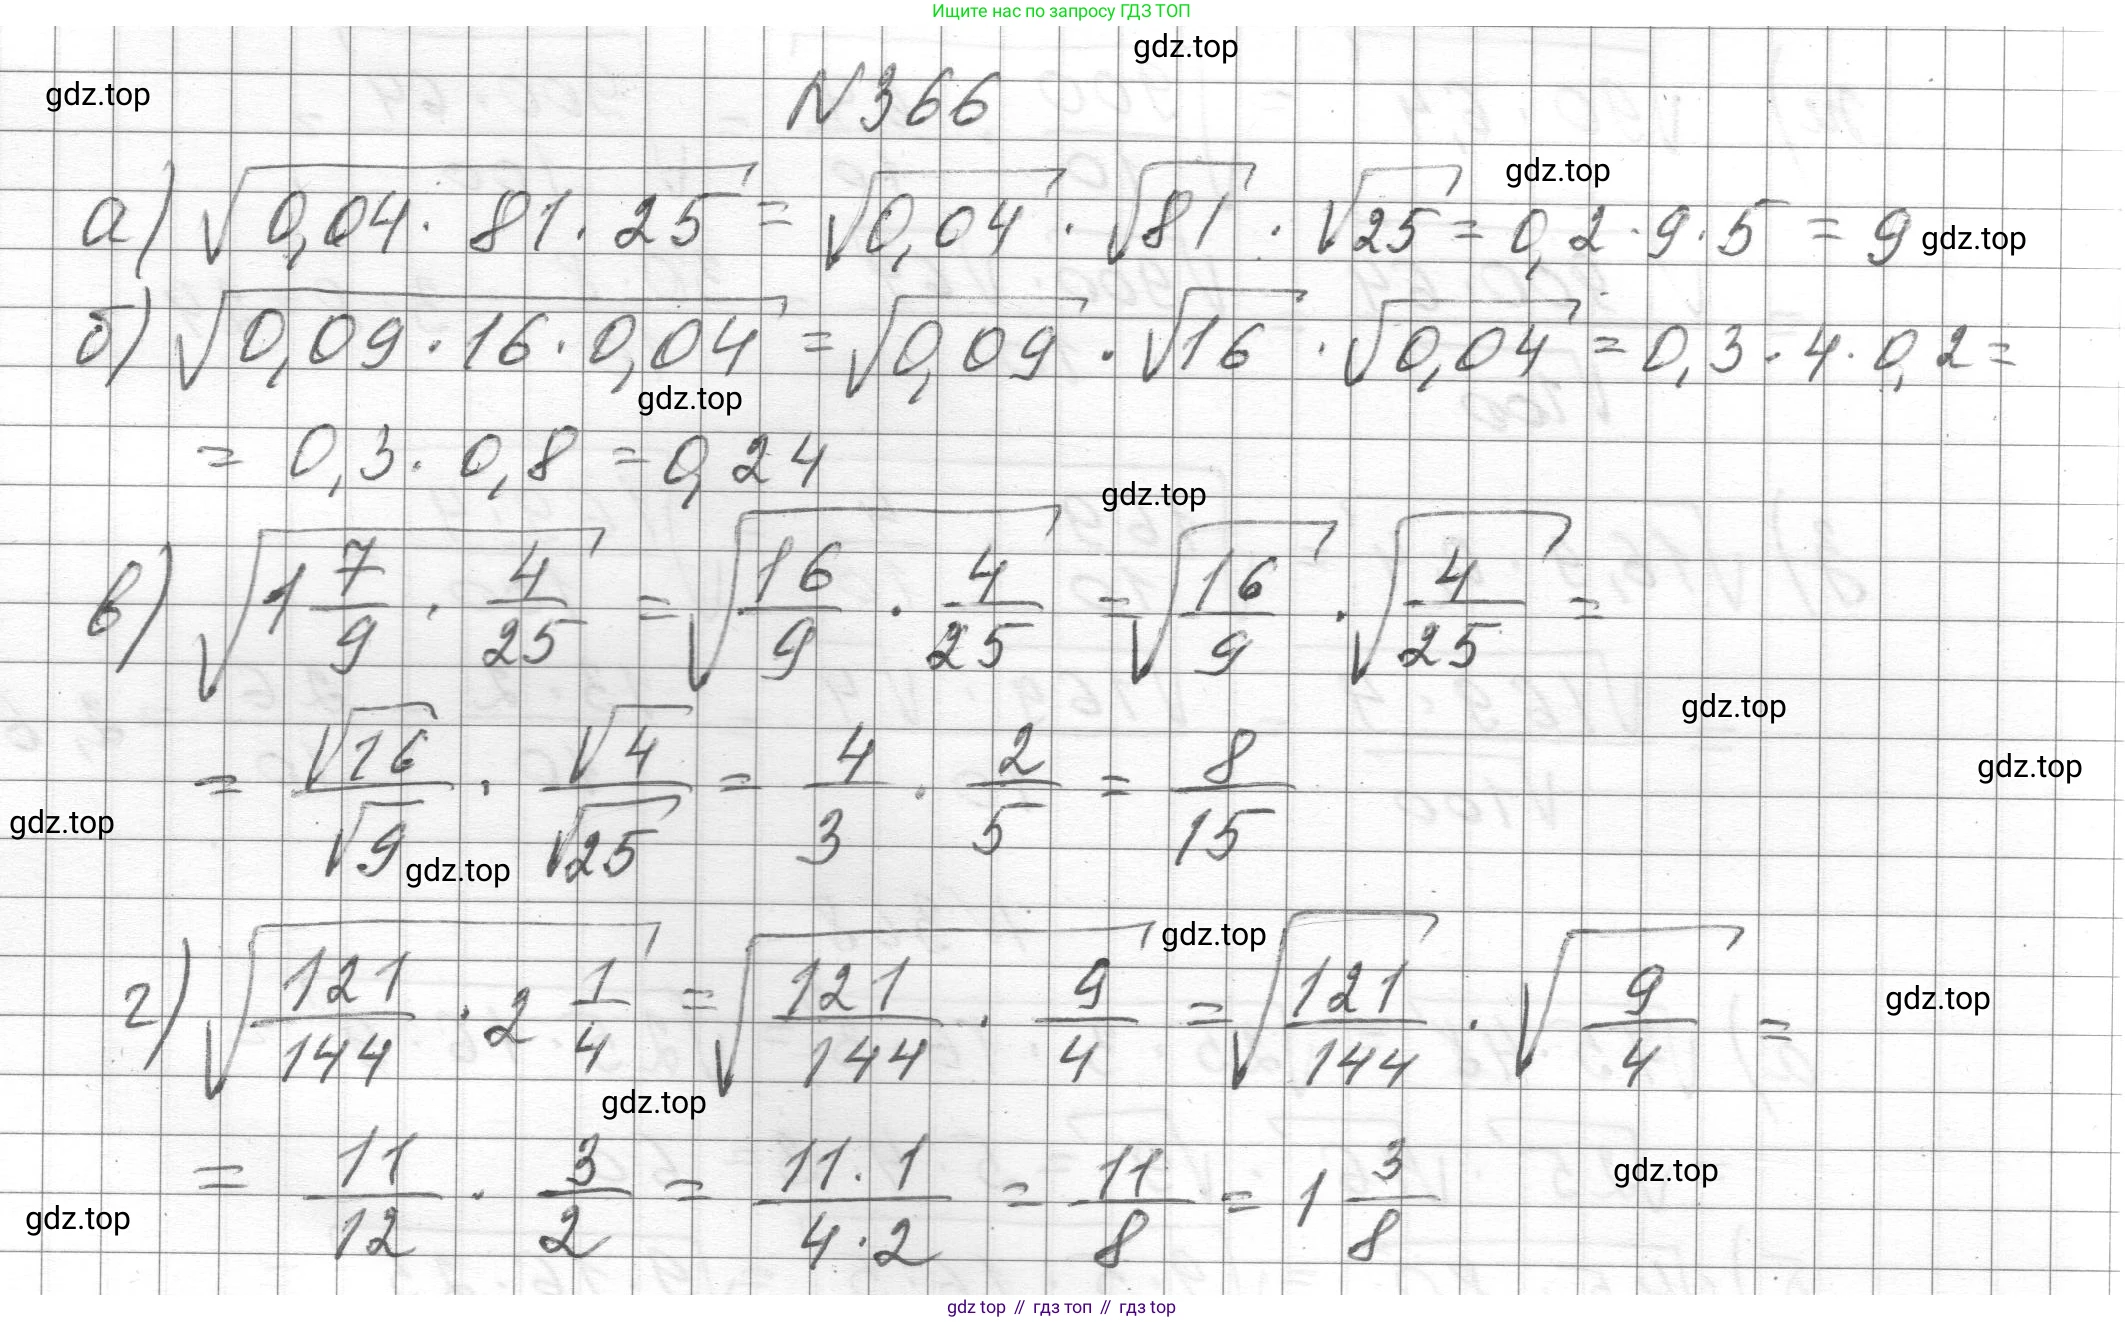 Ищите нас по запросу ГДЗ ТОП
gdz.top
gdz.top
N366
gdz.top
а) √(0,04 · 81 · 25) = √0,04 · √81 · √25 = 0,2 · 9 · 5 = 9
gdz.top
б) √(0,09 · 16 · 0,04) = √0,09 · √16 · √0,04 = 0,3 · 4 · 0,2 =
gdz.top
= 0,3 · 0,8 = 0,24
gdz.top
в) √(1 7/9 · 4/25) = √(16/9 · 4/25) = √(16/9) · √(4/25) =
gdz.top
gdz.top
= √16/√9 · √4/√25 = 4/3 · 2/5 = 8/15
gdz.top
gdz.top
gdz.top
г) √(121/144 · 2 1/4) = √(121/144 · 9/4) = √(121/144) · √(9/4) =
gdz.top
gdz.top
= 11/12 · 3/2 = 11 · 1/4 · 2 = 11/8 = 1 3/8
gdz.top
gdz.top
gdz top // гдз топ // гдз top